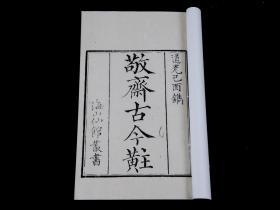 道光己酉鐫
敬齋古今黈
海山仙館叢書